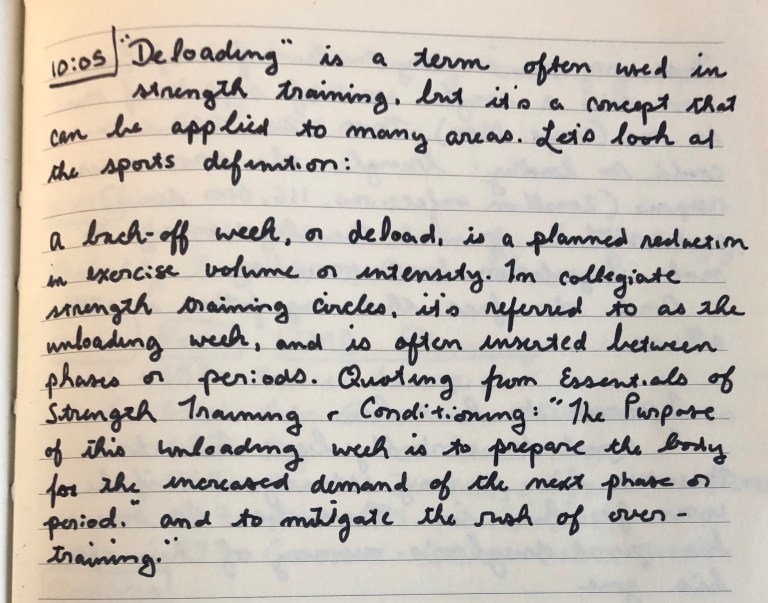 10:05 "Deloading" is a term often used in
strength training, but it's a concept that
can be applied to many areas. Let's look at
the sports definition:
a back-off week, or deload, is a planned reduction
in exercise volume or intensity. In collegiate
strength training circles, it's referred to as the
unloading week, and is often inserted between
phases or periods. Quoting from Essentials of
Strength Training & Conditioning: "The Purpose
of this unloading week is to prepare the body
for the increased demand of the next phase or
period." and to mitigate the risk of over-
training."